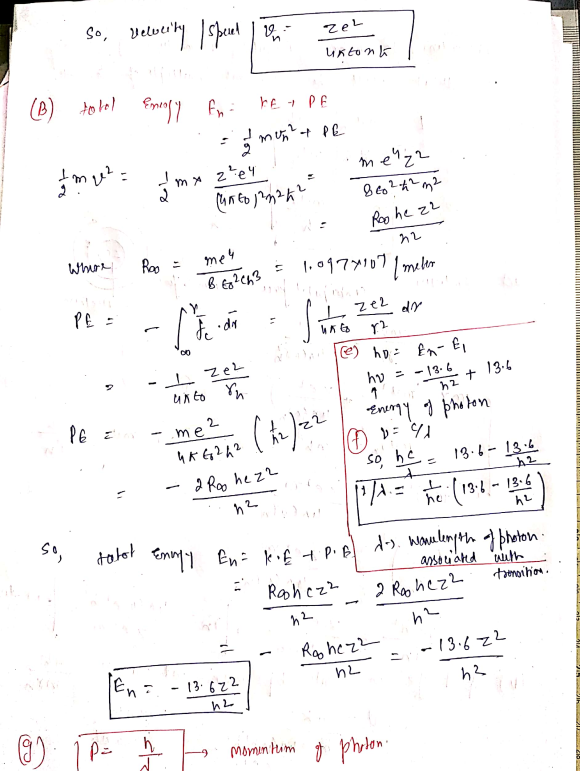 So, velocity / speed v_n = ze² / 4πε₀nħ
(B) total Energy E_n = KE + PE
= 1/2 m v_n² + PE
1/2 m v² = 1/2 m × z²e⁴ / (4πε₀)²n²ħ² = m e⁴z² / 8ε₀²h²n²
= R∞ hc z² / n²
where R∞ = me⁴ / 8ε₀²ch³ = 1.097×10⁷ / meter
PE = - ∫_∞^r F_c . dr = ∫ 1/4πε₀ ze²/r² dr
= - 1/4πε₀ ze²/r_n
PE = - me² / 4πε₀²h² (1/n²) z²
= - 2R∞ hcz² / n²
(e) hν = E_n - E_1
hν = -13.6/n² + 13.6
↑
Energy of photon
(f) ν = c/λ
So, hc/λ = 13.6 - 13.6/n²
1/λ = 1/hc (13.6 - 13.6/n²)
λ → wavelength of photon
associated with
transition.
So, total Energy E_n = K.E + P.E
= R∞hcz² / n² - 2R∞hcz² / n²
= - R∞hcz² / n² = -13.6 z² / n²
E_n = - 13.6z² / n²
(g) P = h/λ → momentum of photon.